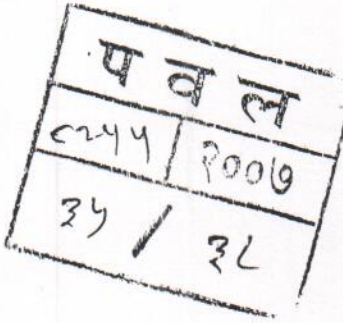 पवल
८२५५ २००७
३५ / ३८